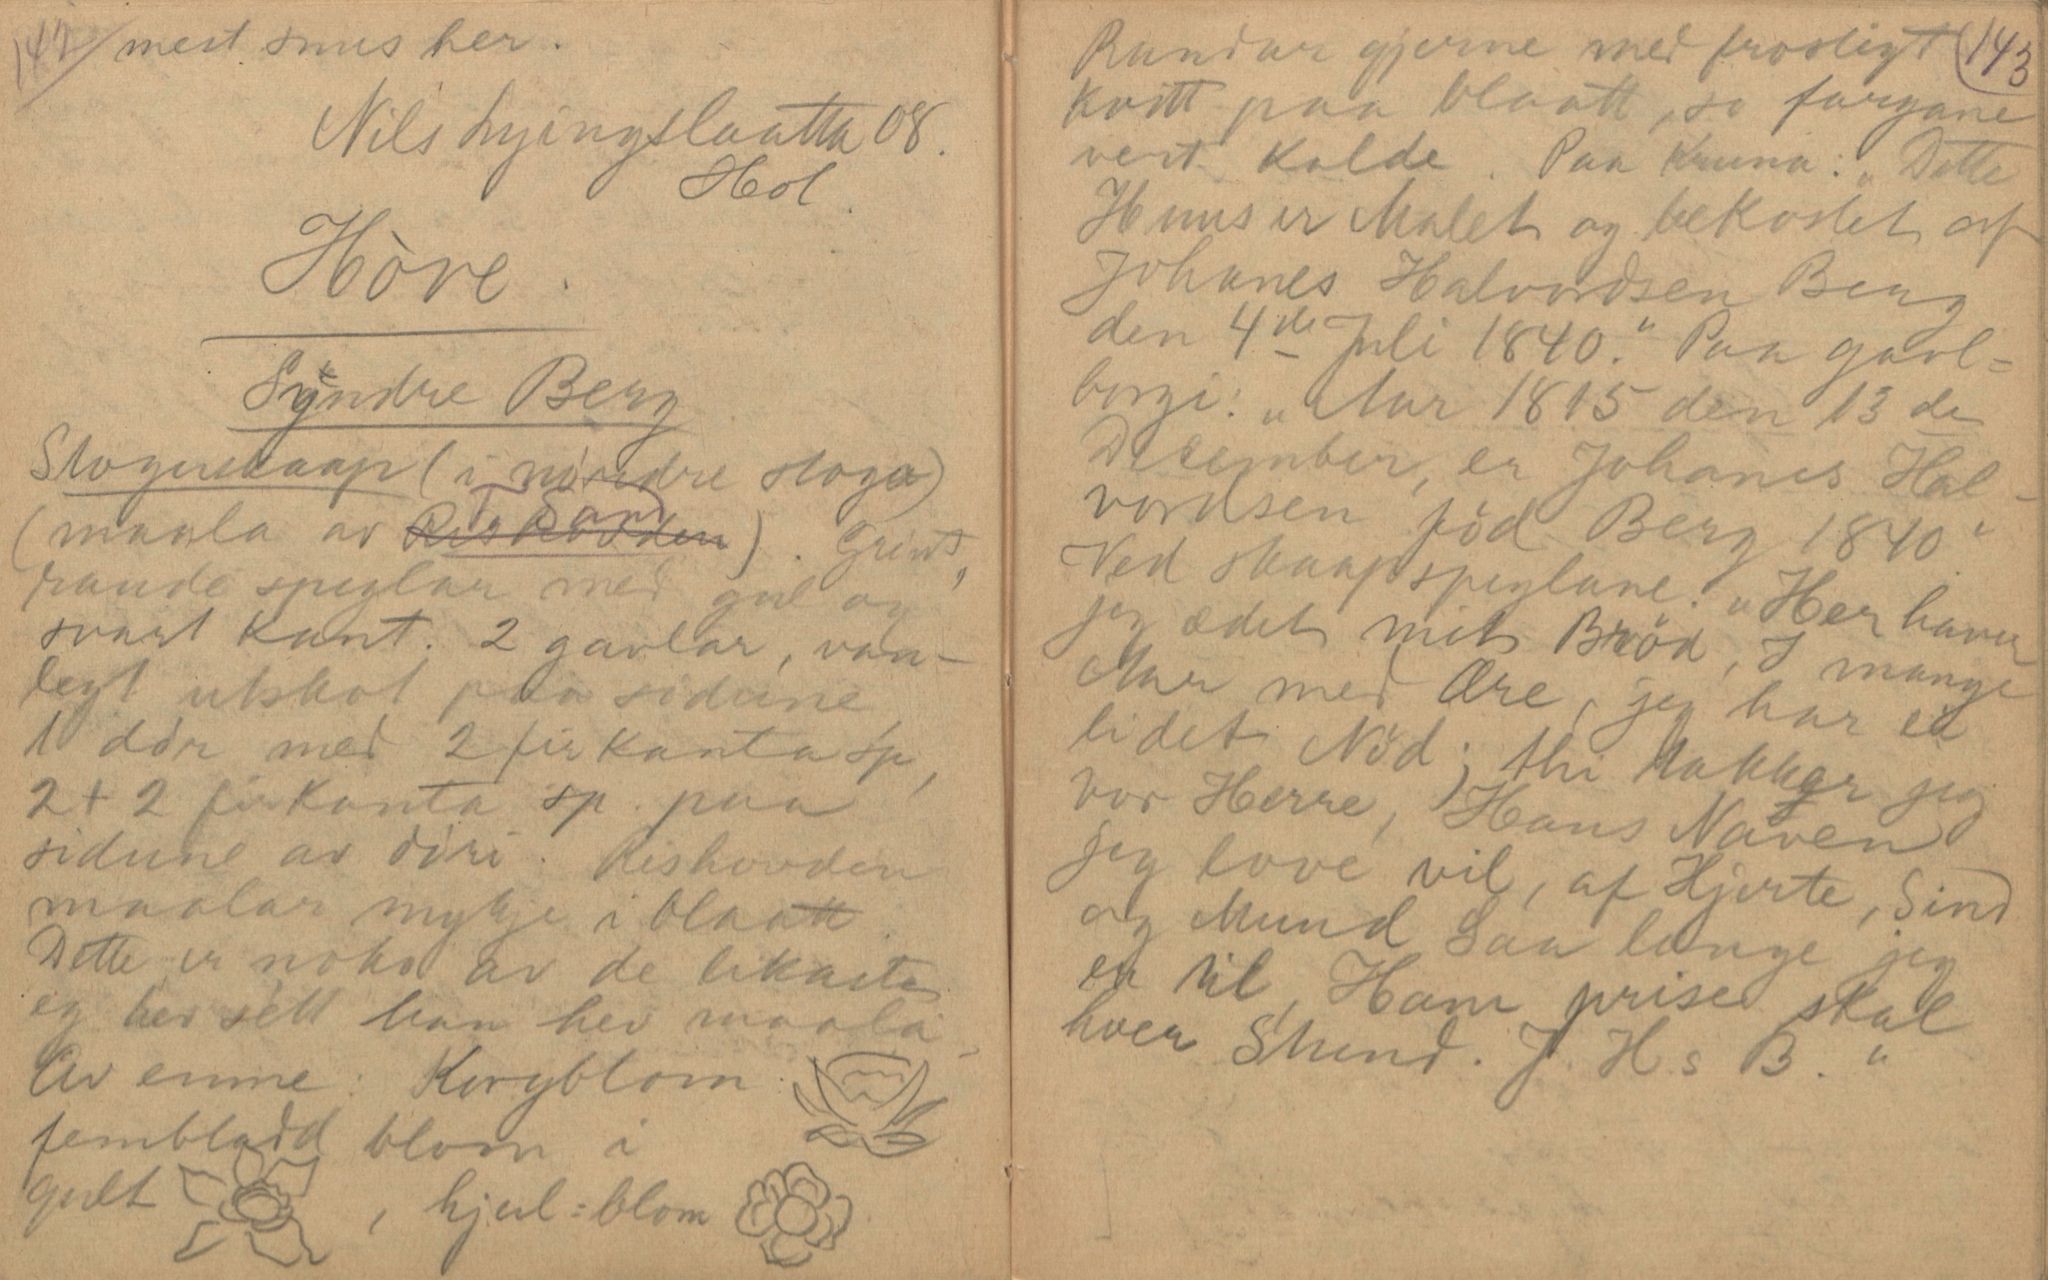 142
mest snus her.
Nils Lyingslaatta 08.
Hol.
Hòve.
Sýndre Berg
Stogeskaap (i nørdre stoga)
T. Sand
(maala av Riskovden). Grint,
raude speglar med gul og
svart kant. 2 gavlar, van-
legt utskot paa sidune,
1 dør med 2 firkanta sp,
2 + 2 firkanta sp. paa
sidune av døri. Riskovden
maalar mykje i blaatt.
Dette er noko av de likaste
eg hev sett han hev maala.
Av emne: Korgblom:
fembladd blom i
gult , hjul=blom
143
Rundar gjerne med frosligt
kvitt paa blaatt, so fargane
vert kalde. Paa Kruna: "Dette
Huus er Malet og bekostet af
Johanes Halvordsen Berg
den 4de Juli 1840." Paa gavl=
borgi: "Aar 1815 den 13 de
December, er Johanes Hal-
vordsen föd Berg 1840."
Ved skaapspeglane: "Her haver
jeg ædet mit Bröd, I mange
Aar med Ære, jeg har ei
lidet Nöd; thi takker jeg
vor Herre, Hans Naven
jeg love vil, af Hjerte, Sind
og Mund Saa længe jeg
er til, Ham prise skal
hver Stund. J. H. s B."